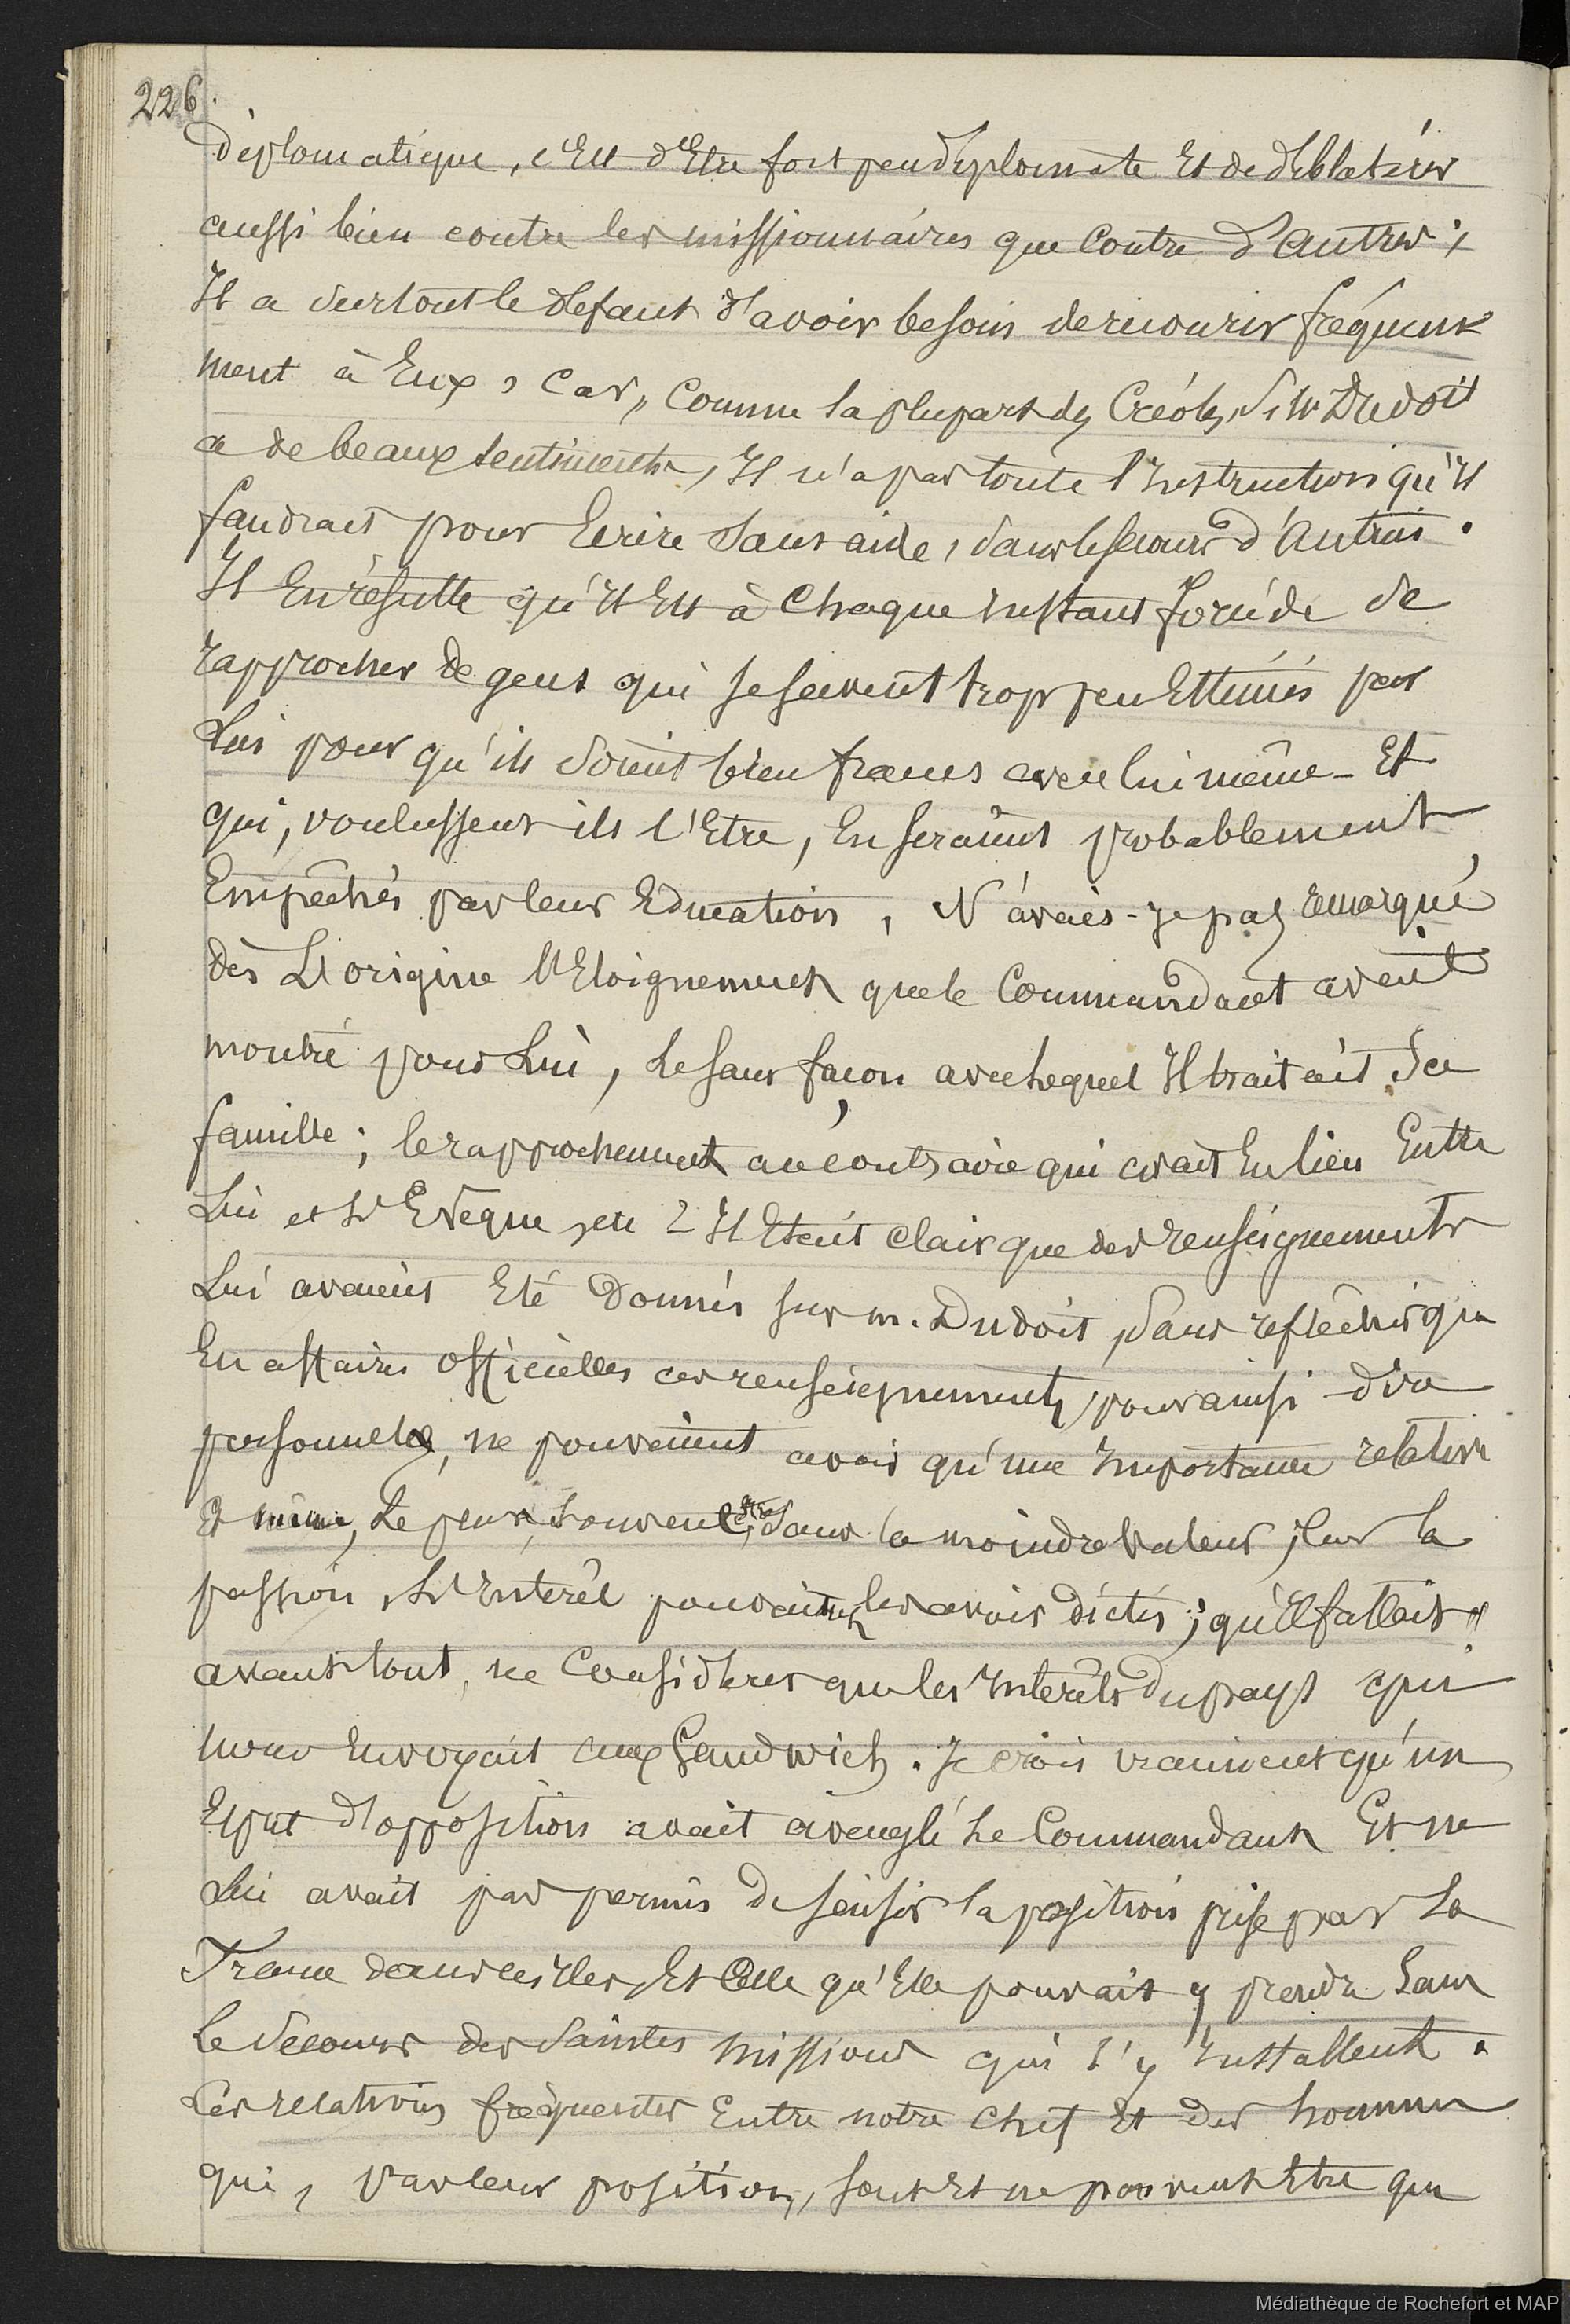 226.
diplomatique, c'Est d'Etre fort peu diplomate Et de déblatérer
aussi bien contre les missionnaires que Contre d'Autres ;
Il a surtout le defaut d'avoir besoin de recourir fréquem
ment à Eux, Car, Comme la plupart des Créoles, Si Mr Dudoit
a de beaux sentiments, Il n'a pas toute l'Instruction qu'Il
faudrait pour Ecrire Sans aide, sans le secours d'Autrui.
Il En résulte qu'Il Est à Chaque Instant forcé de de
rapprocher de gens qui se savent trop peu Estimés par
Lui pour qu'ils soient bien francs avec lui même - Et
qui, voulussent ils l'Etre, En seraient probablement
Empêchés par leur Education, N'avais-je pas remarqué
dès L'origine l'Eloignement que le Commandant avait
montré pour Lui, Le sans façon avec lequel Il traitait sa
famille ; le rapprochement au contraire qui avait Eu lieu Entre
Lui et L'Evêque, Il Etait clair que des renseignements
Lui avaient Eté Donnés sur m. Dudoit, Sans réfléchir que
En affaires Officielles ces renseignements, pour ainsi dire
personnels, ne pouvaient avoir qu'une Importance relative
Et même, Le plus souvent, Etre Sans la moindre valeur, Car la
passion, L'Intérêt pouvaient les avoir dictés ; qu'Il fallait
avant tout, ne Considérer que les Intérêts du pays qui
nous Envoyait aux Sandwich. Je crois vraiment qu'un
Esprit d'opposition avait aveuglé Le Commandant Et ne
Lui avait pas permis de saisir la position prise par La
France dans ces Iles, Et Celle qu'Elle pouvait y prendre Sans
Le Secours des Saintes missions qui s'y Installent.
Les relations fréquentes Entre notre Chef Et des hommes
qui, Par leur position, sont Et ne peuvent Etre que
Médiathèque de Rochefort et MAP